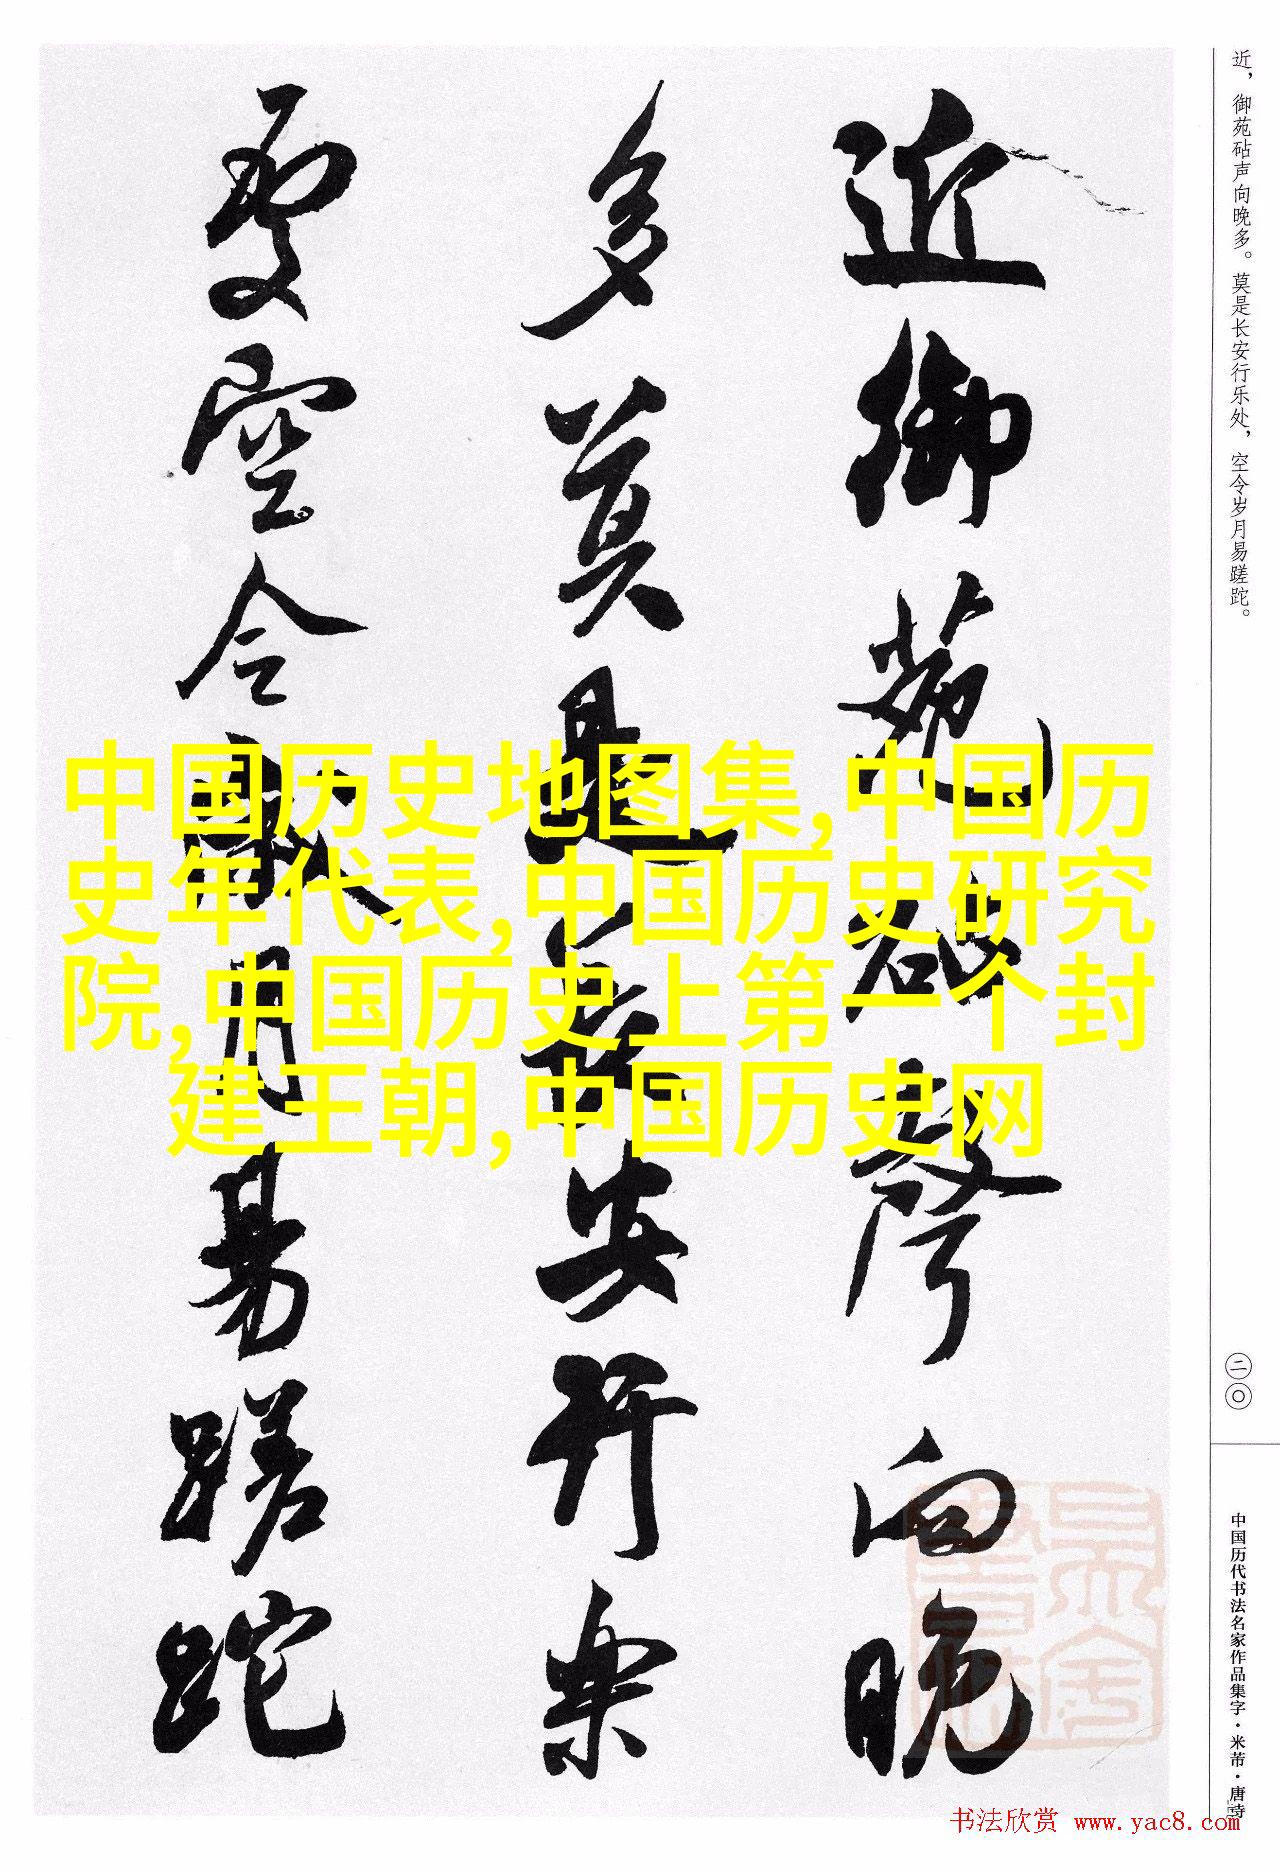 近御苑砧聲向晚
多莫是長安行樂
處空令歲月易蹉跎
近，御苑砧声向晚多。莫是长安行乐处，空令岁月易蹉跎。
二〇
中国历代书法名家作品集字·米芾·唐诗
中国历史地图集,中国历
史年代表,中国历史研究
院,中国历史上第一个封
建王朝,中国历史网
书法欣赏 www.yac8.com